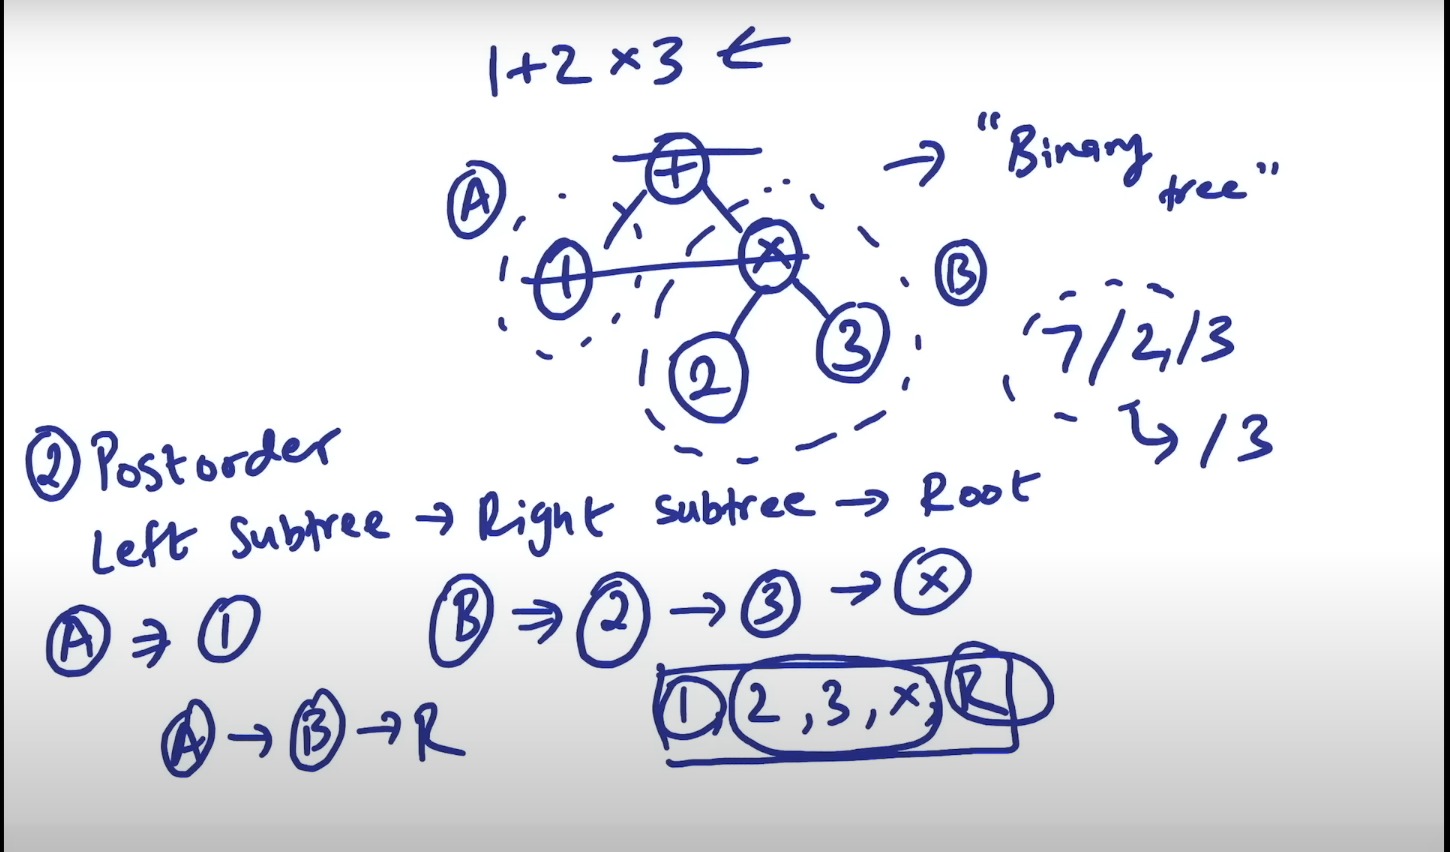 1+2×3 ←
A
+
→ "Binary
tree"
1
×
B
2
3
7/2/3
↳ /3
② Postorder
Left Subtree → Right subtree → Root
A ⇒ 1
B ⇒ 2 → 3 → ×
A → B → R
1, 2, 3, ×, R